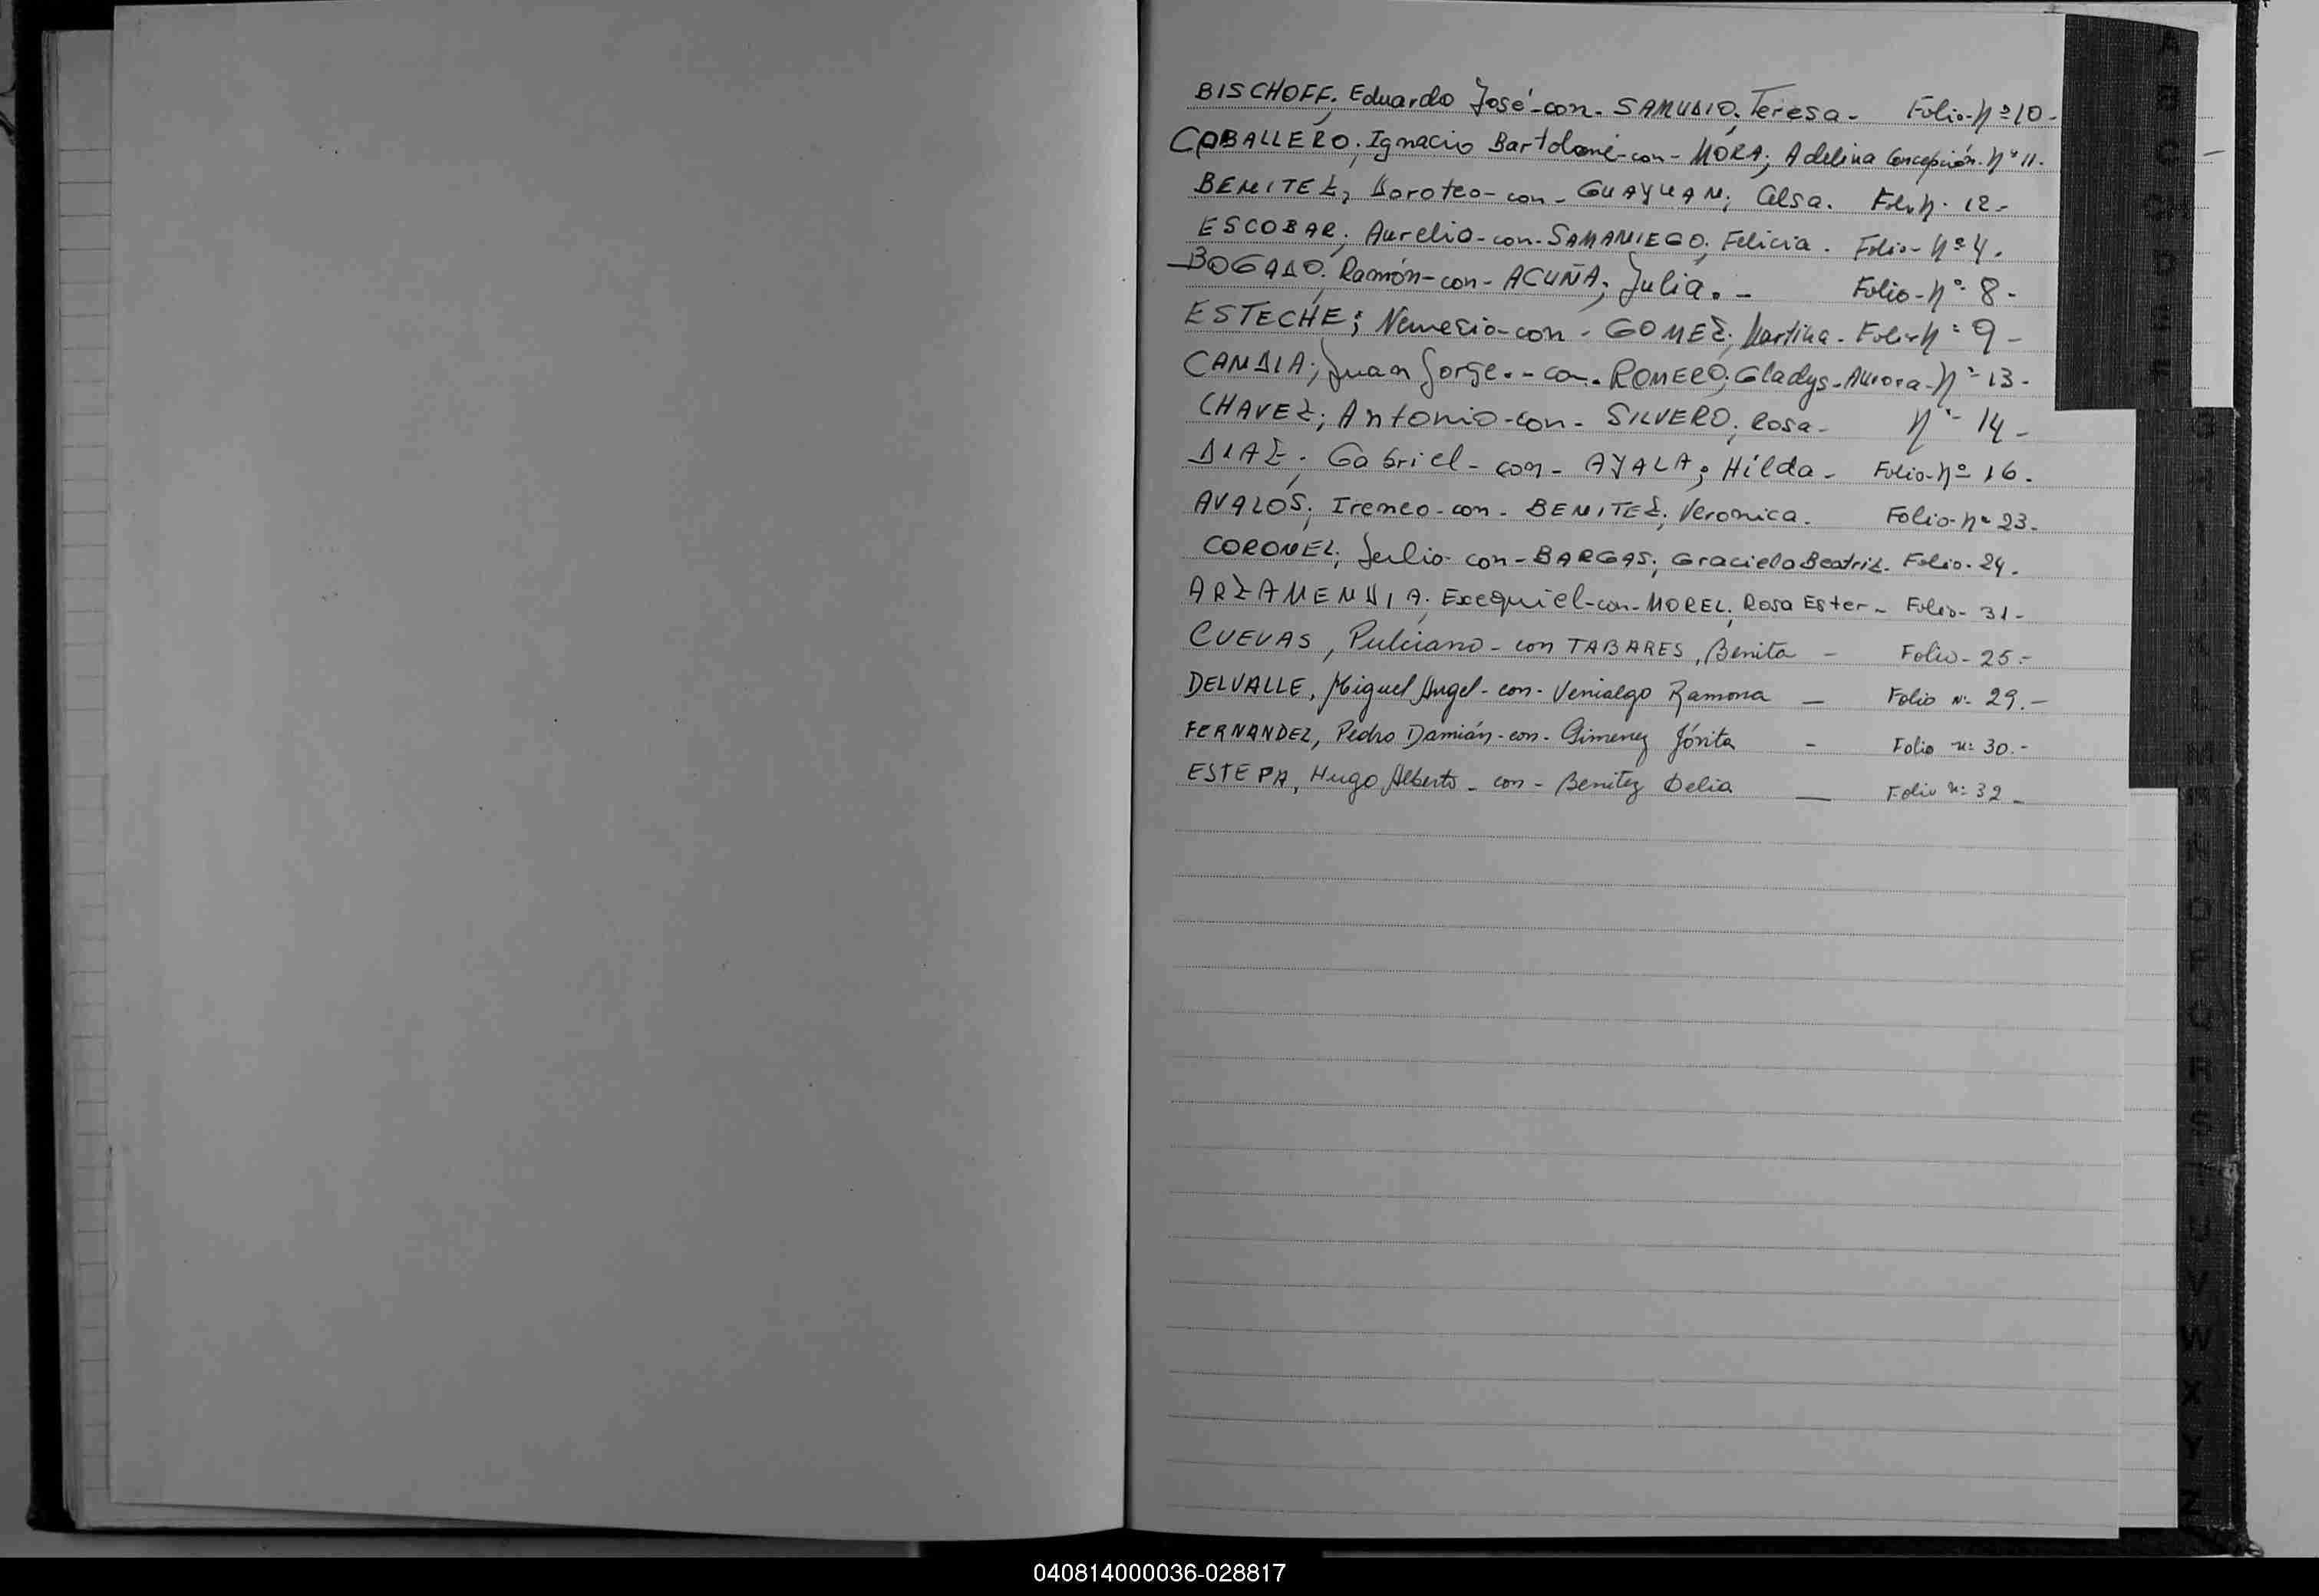 BISCHOFF; Eduardo José-con-SAMUDIO; Teresa- Folio-Nº10-
CABALLERO; Ignacio Bartolomé-con-MORA; Adelina Concepción-Nº11.
BENITEZ, Doroteo-con-GUAYUAN; Celsa. Fol.N. 12-
ESCOBAR; Aurelio-con-SAMANIEGO; Felicia. Folio-Nº4.
BOGADO; Ramón-con-ACUÑA; Julia.- Folio-Nº 8-
ESTECHE; Nemesio-con-GOMEZ; Martina-Folio-Nº9-
CANDIA; Juan Jorge.-con-ROMERO; Gladys-Aurora-Nº13-
CHAVEZ; Antonio-con-SILVERO; Rosa- Nº 14-
DIAZ; Gabriel-con-AYALA; Hilda- Folio-Nº 16.
AVALOS; Ireneo-con-BENITEZ; Veronica. Folio-Nº 23-
CORONEL; Julio-con-BARGAS; Graciela Beatriz. Folio-24.
ARZAMENDIA; Exequiel-con-MOREL; Rosa Ester- Folio-31-
CUEVAS, Pulciano-con TABARES, Benita - Folio-25.-
DELVALLE, Miguel Angel-con-Venialgo Ramona - Folio Nº 29.-
FERNANDEZ, Pedro Damián-con-Gimenez Jórita - Folio Nº 30.-
ESTEPA, Hugo Alberto-con-Benítez Delia - Folio Nº 32-
A
B
C
CH
D
E
F
G
H
I
J
K
L
M
N
Ñ
O
P
Q
R
S
T
U
V
W
X
Y
Z
040814000036-028817